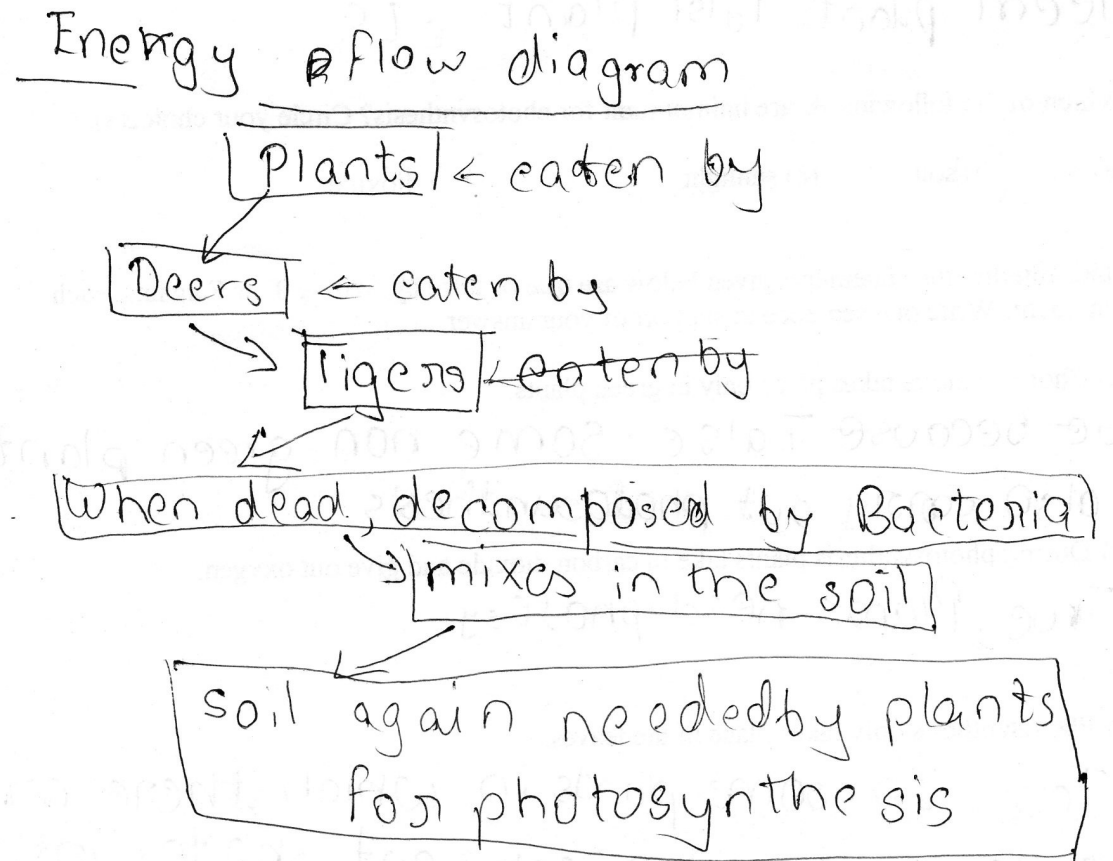 Energy flow diagram
Plants ← eaten by
Deers ← eaten by
Tigers ← eaten by
When dead, decomposed by Bacteria
mixes in the soil
soil again needed by plants
for photosynthesis